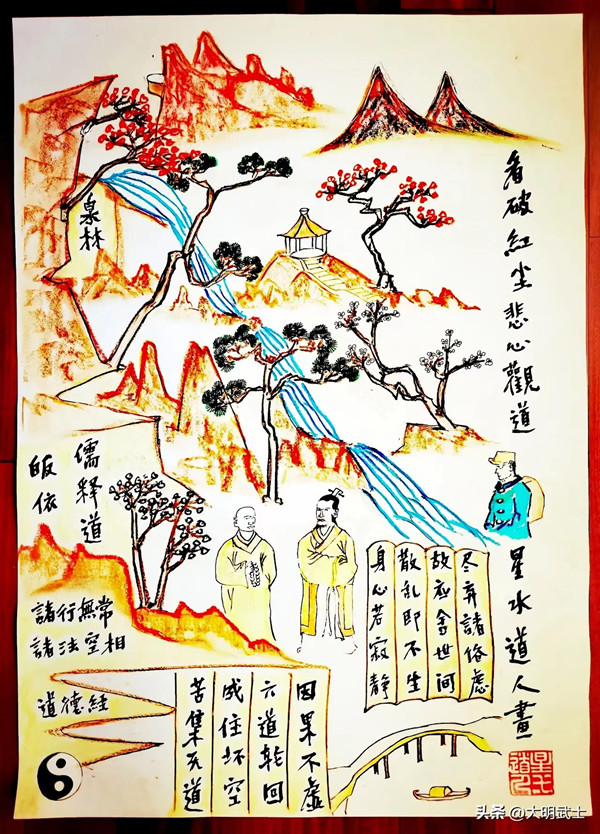 看破紅尘悲心觀道
星水道人畫
泉林
儒释道
皈依
諸行無常
諸法空相
道德經
尽弃諸俗慮
故应舍世间
散乱即不生
身心若寂静
因果不虚
六道轮回
成住坏空
苦集灭道
头条 @大明武士